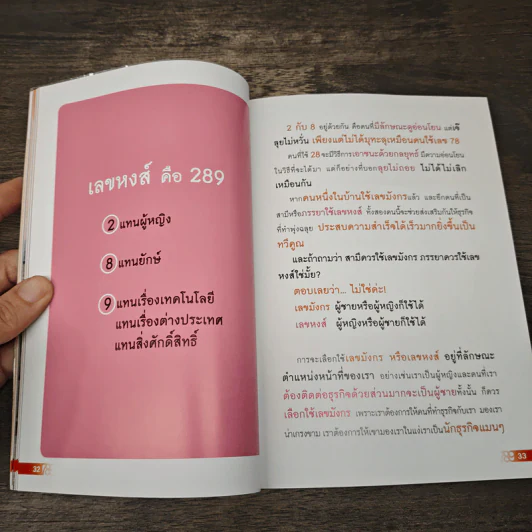 เลขหงส์ คือ 289
2 แทนผู้หญิง
8 แทนยักษ์
9 แทนเรื่องเทคโนโลยี
แทนเรื่องต่างประเทศ
แทนสิ่งศักดิ์สิทธิ์
32
2 กับ 8 อยู่ด้วยกัน คือคนที่มีลักษณะดูอ่อนโยน แต่เจ๊
ลุยไม่หวั่น เพียงแต่ไม่ได้มุทะลุเหมือนคนใช้เลข 78
คนที่ใช้ 28 จะมีวิธีการเอาชนะด้วยกลยุทธ์ มีความอ่อนโยน
ในวิธีที่จะได้มา แต่ก็อย่างที่บอกลุยไม่ถอย ไม่ได้ไม่เลิก
เหมือนกัน
หากคนหนึ่งในบ้านใช้เลขมังกรแล้ว และอีกคนที่เป็น
สามีหรือภรรยาใช้เลขหงส์ ทั้งสองคนนี้จะช่วยส่งเสริมกันให้ธุรกิจ
ที่ทำพุ่งฉลุย ประสบความสำเร็จได้เร็วมากยิ่งขึ้นเป็น
ทวีคูณ
และถ้าถามว่า สามีควรใช้เลขมังกร ภรรยาควรใช้เลข
หงส์ใช่มั้ย?
ตอบเลยว่า... ไม่ใช่ค่ะ!
เลขมังกร ผู้ชายหรือผู้หญิงก็ใช้ได้
เลขหงส์ ผู้หญิงหรือผู้ชายก็ใช้ได้
การจะเลือกใช้เลขมังกร หรือเลขหงส์ อยู่ที่ลักษณะ
ตำแหน่งหน้าที่ของเรา อย่างเช่นเราเป็นผู้หญิงและคนที่เรา
ต้องติดต่อธุรกิจด้วยส่วนมากจะเป็นผู้ชายทั้งนั้น ก็ควร
เลือกใช้เลขมังกร เพราะเราต้องการให้คนที่ทำธุรกิจกับเรา มองเรา
น่าเกรงขาม เราต้องการให้เขามองเราในแง่เราเป็นนักธุรกิจแมนๆ
33